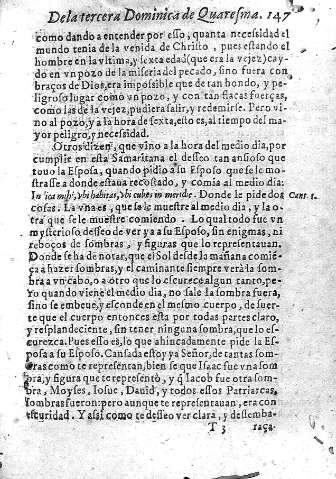 De la tercera Dominica de Quaresma. 147
como dando a entender por esso, quanta necesidad el
mundo tenia de la venida de Christo, pues estando el
hombre en la vltima, y sexta edad (que era la vejez) cay
do en vn pozo de la miseria del pecado, sino fuera con
braços de Dios, era impossible que de tan hondo, y pe
ligroso lugar como vn pozo, y con tan flacas fuerças,
como las de la vejez, pudiera salir, y redemirse. Pero vi
no al pozo, y a la hora de sexta, esto es, al tiempo del ma
yor peligro, y necessidad.
Otros dizen, que vino a la hora del medio dia, por
cumplir en esta Samaritana el desseo tan ansioso que
tuuo la Esposa, quando pidio a su Esposo que se le mo
strasse a donde estaua recostado, y comia al medio dia:
Indica mihi, vbi habitas, vbi cubes in meridie. Donde le pide dos Cant. 1.
cosas. La vna es, que se le muestre al medio dia, y la o
tra que se le muestre comiendo. Lo qual todo fue vn
mysterioso desseo de ver ya a su Esposo, sin enigmas, ni
reboços de sombras, y figuras que lo representauan.
Donde se ha de notar, que el Sol desde la mañana comié
ça a hazer sombras, y el caminante siempre verá la som
bra a vn cabo, o a otro que lo escurece algun tanto, pe
ro quando viene el medio dia, no sale la sombra fuera,
sino se embeue, y esconde en el mismo cuerpo, de suer-
te que el cuerpo entonces esta por todas partes claro,
y resplandeciente, sin tener ninguna sombra, que lo es-
curezca. Pues esso es, lo que ahincadamente pide la Es
posa a su Esposo. Cansada estoy ya Señor, de tantas som
bras como te representan, bien se que Isaac fue vna som
bra, y figura que te representò, y q̃ Iacob fue otra som
bra, Moyses, Iosue, Dauid, y todos essos Patriarcas,
sombras fueron: pero aunque te representauan, era con
escuridad. Y assi como te desseo ver clara, y desemba-
T 3 raça-